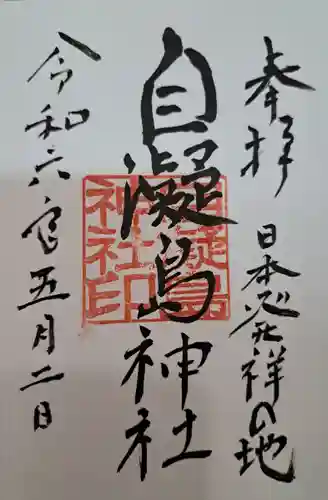 奉拝
日本発祥の地
自凝島神社
自凝島神社印
令和六年五月二日